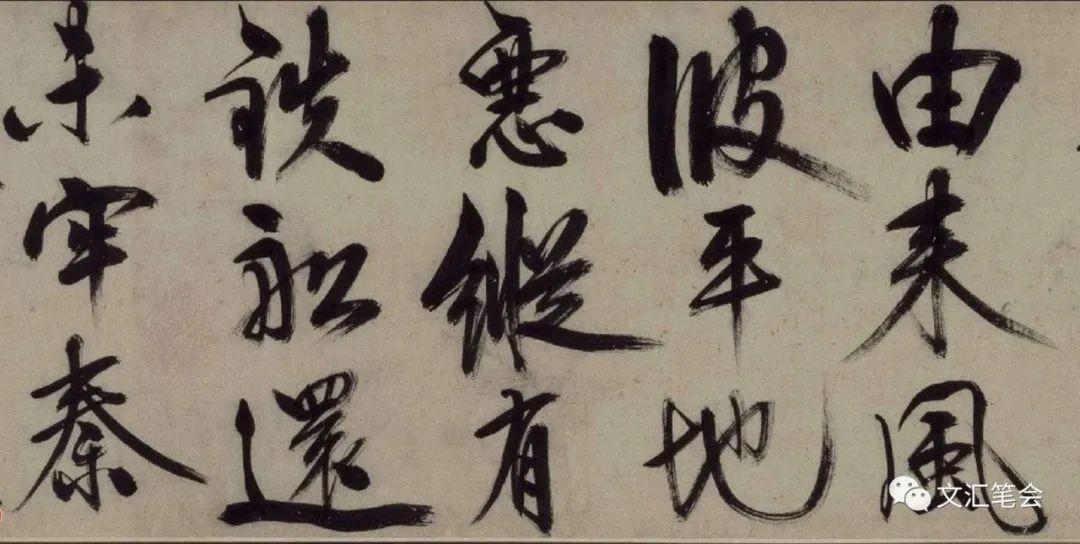 由来風
波平地
惡縱有
鉄船還
未牢秦
文汇笔会